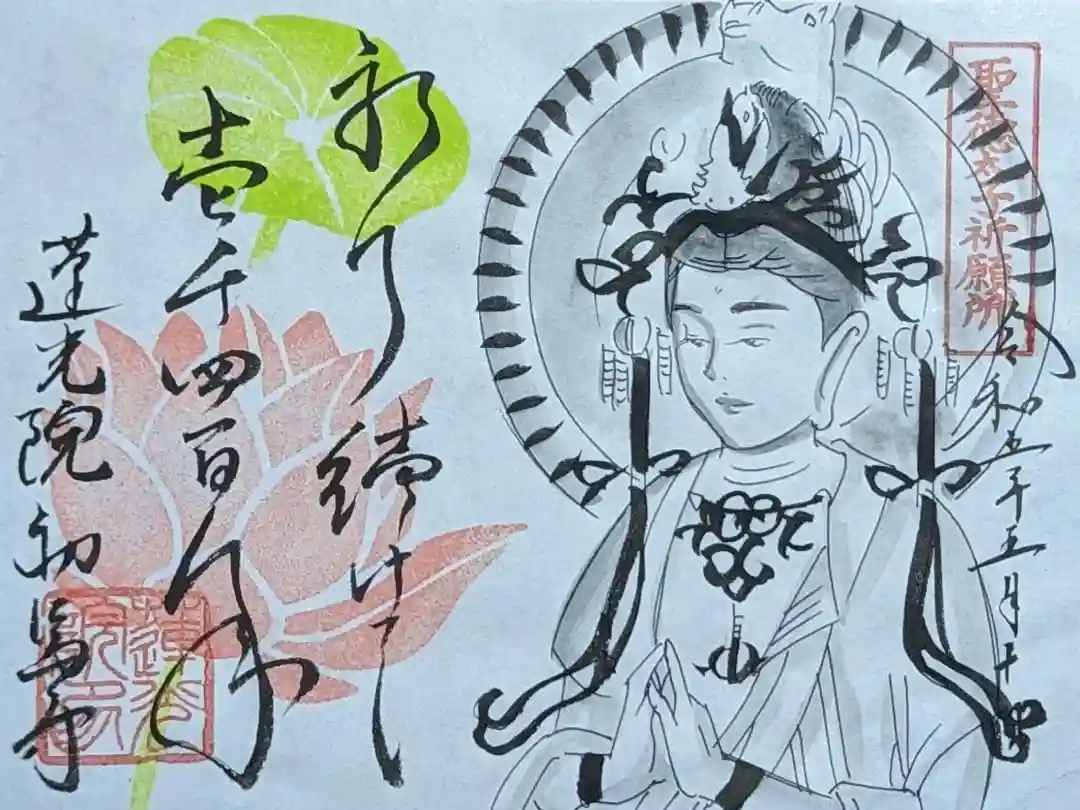 聖徳太子祈願所
令和五年五月十四日
祈り続けて
壱千四百年
蓮光院初馬寺
蓮光院印